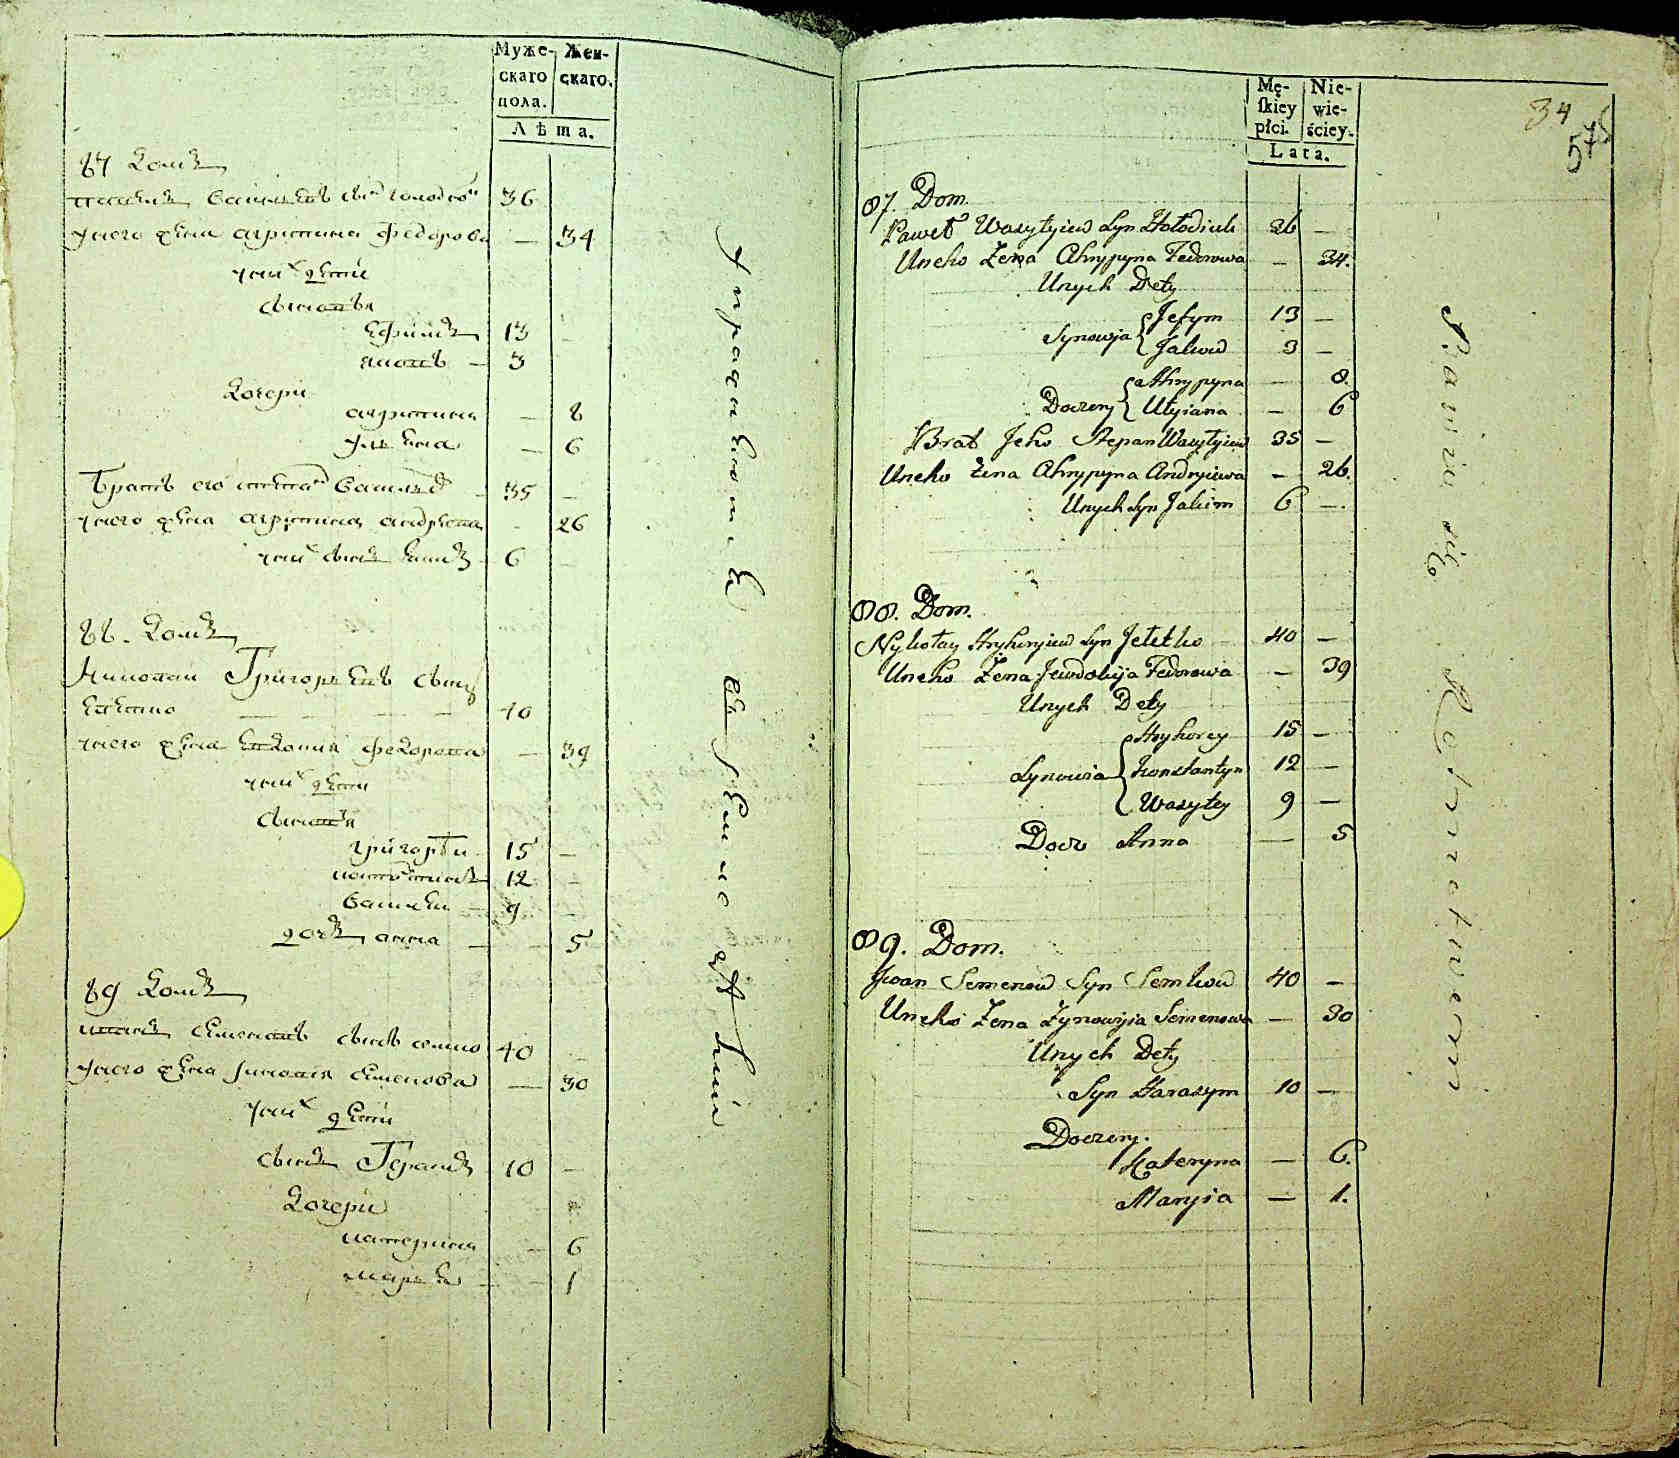 Муже-
скаго
пола.
Жен-
скаго.
Лѣта.
87 Домъ
Павелъ Васильевъ сынъ 36
у него жена агрипина федорова — 34
у них дѣти
сыновья
Ефимъ 13 —
яковъ — 3
Дочери
агрипина — 8
улиана — 6
Братъ его степан Васильев — 35 —
у него жена агрипина андреева — 26
у них сынъ 6 —
88. Домъ
Николай Григорьевъ сынъ
40
у него жена Евдокия Федорова — 39
у них дѣти
сыновья
григорѣй 15 —
констянтинъ 12 —
Василей — 9 —
дочь анна — — 5
89 Домъ
иванъ Семеновъ сынъ 40 —
у него жена Зиновия Семенова — 30
у них дѣти
сынъ Герасимъ 10 —
Дочери
катерина — 6
марья — 1
34
575
Mę-
ſkiey
płci.
Nie-
wie-
ściey.
Lata.
87. Dom.
Paweł Wasylyiew Syn Hołodiuk 36 —
Uneho Żena Ahrypyna Fedorowa — 34.
Unych Dety
Synowja { Jefym 13 —
Jakow 3 —
Doczery { Ahrypyna — 8.
Ulyiana — 6
Brat Jeho Stepan Wasylyiew 35 —
Uneho Żena Ahrypyna Andryiewa — 26.
Unych Syn Jakim 6 —.
88. Dom.
Nykołay Hryhoryiew Syn 40 —
Uneho Żena Jewdokija Fedorowa — 39
Unych Dety
Synowia { Hryhorey 15 —
Konstantyn 12 —
Wasyley 9 —
Docz Anna — 5
89. Dom.
Iwan Semenow Syn Semkow 40 —
Uneho Żena Zynowyia Semenowa — 30
Unych Dety
Syn Harasym 10 —
Doczery.
Kateryna — 6.
Maryia — 1.